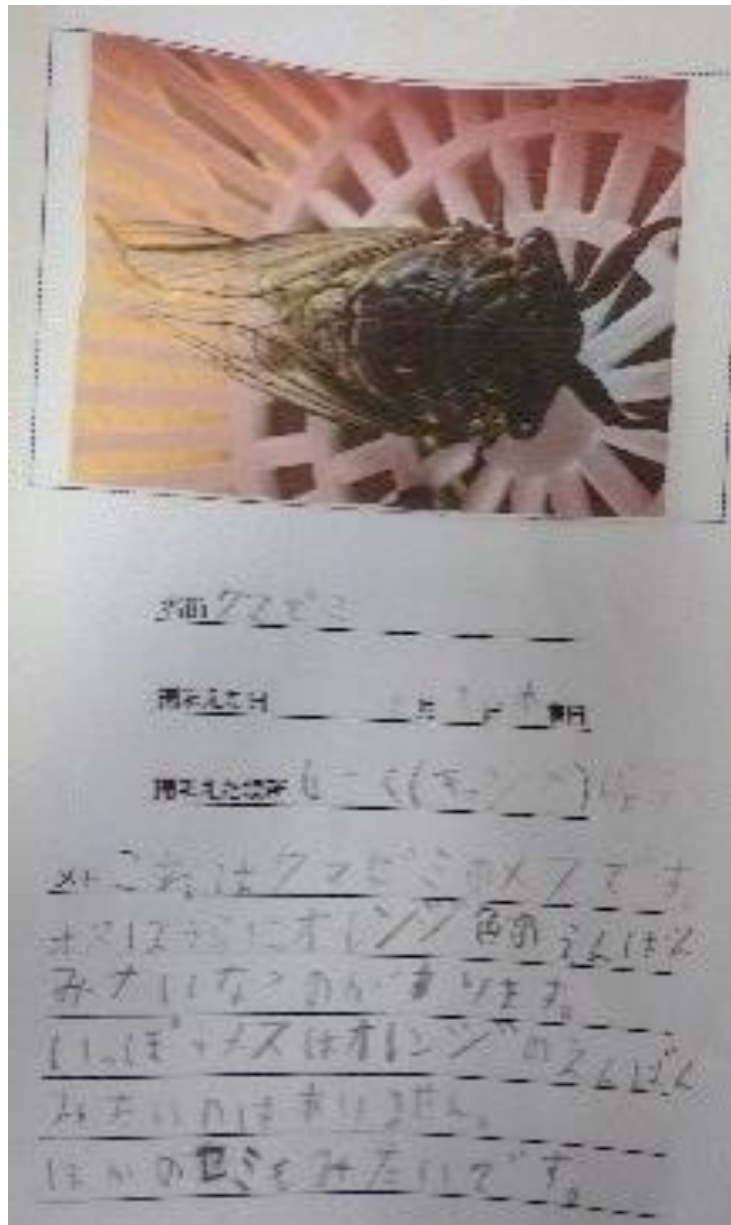 名前 クマゼミ
捕まえた日 月 日 曜日
捕まえた場所
メモ これはクマゼミのメスです。
オスはうらにオレンジ色のえんばん
みたいなものがあります。
いっぽうメスはオレンジのえんばん
みたいのはありません。
ほかのセミもみたいです。